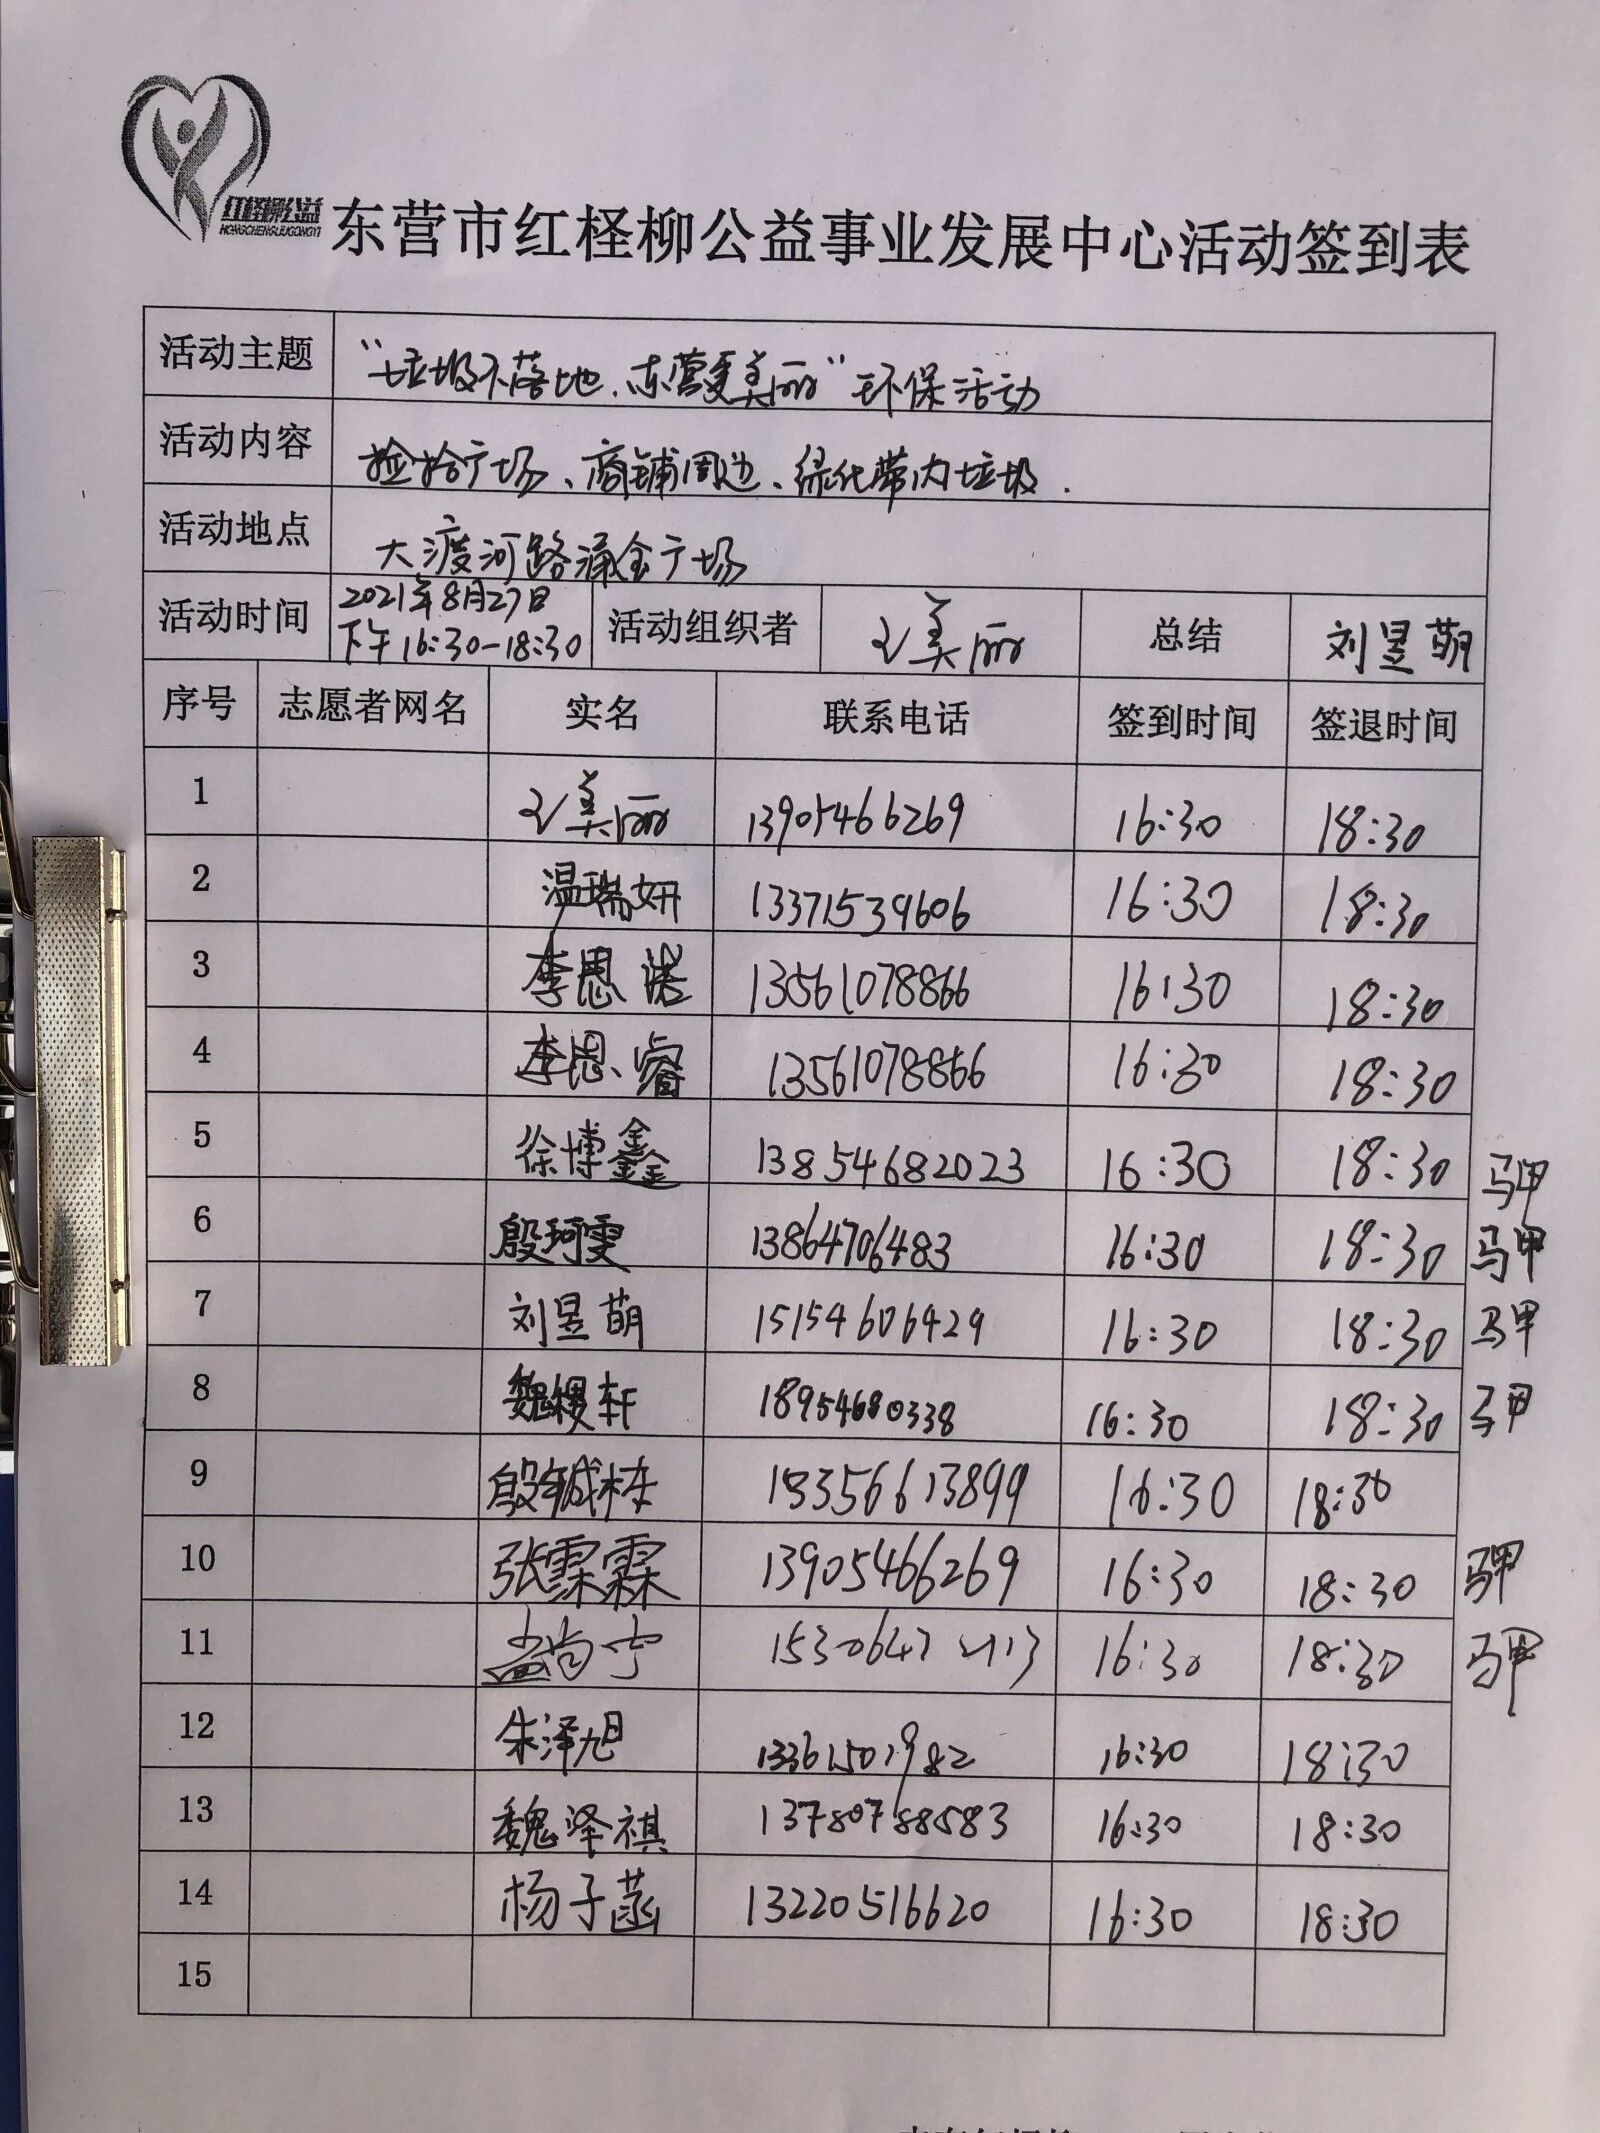 红柽柳公益
HONGCHENGLIUGONGYI
东营市红柽柳公益事业发展中心活动签到表
活动主题 “垃圾不落地、东营更美丽”环保活动
活动内容 捡拾广场、商铺周边、绿化带内垃圾.
活动地点 大渡河路涌金广场
活动时间 2021年8月27日 下午16:30-18:30 活动组织者 王美丽 总结 刘昱萌
序号 志愿者网名 实名 联系电话 签到时间 签退时间
1 王美丽 13905466269 16:30 18:30
2 温瑞妍 13371539606 16:30 18:30
3 李思诺 13561078866 16:30 18:30
4 李思睿 13561078866 16:30 18:30
5 徐博鑫 13854682023 16:30 18:30 马甲
6 殷珂雯 13864706483 16:30 18:30 马甲
7 刘昱萌 15154606429 16:30 18:30 马甲
8 魏稷轩 18954680338 16:30 18:30 马甲
9 殷铖栋 15356613899 16:30 18:30
10 张霖霖 13905466269 16:30 18:30 马甲
11 孟尚宁 16:30 18:30 马甲
12 朱泽旭 13361501982 16:30 18:30
13 魏泽祺 13780788583 16:30 18:30
14 杨子菡 13220516620 16:30 18:30
15